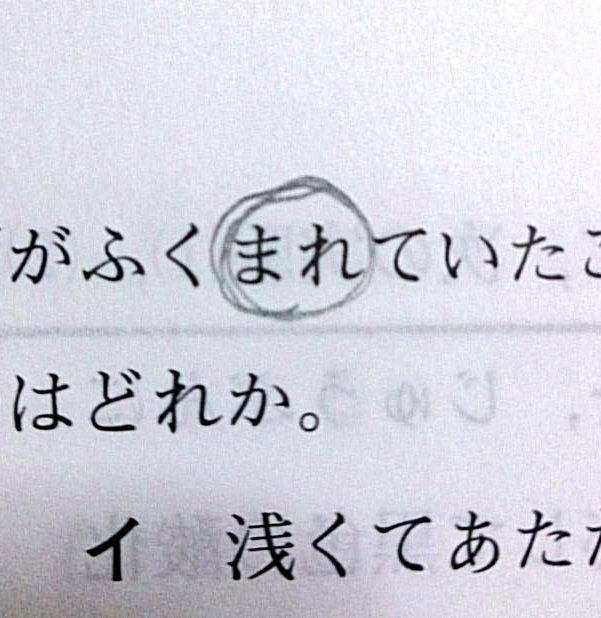 がふくまれていたこ
はどれか。
イ 浅くてあたた